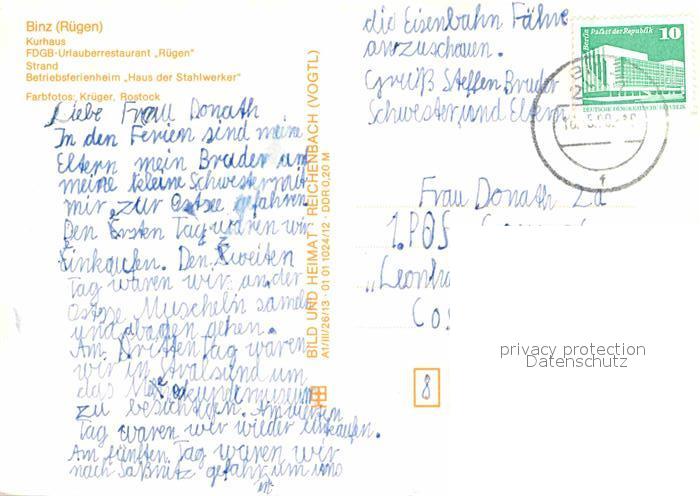 Binz (Rügen)
Kurhaus
FDGB-Urlauberrestaurant „Rügen"
Strand
Betriebsferienheim „Haus der Stahlwerker"
Farbfotos: Krüger, Rostock
Liebe Frau Donath
In den Ferien sind meine
Eltern mein Bruder und
meine kleine Schwester mit
mir zur Ostsee gefahren.
Den Ersten Tag waren wir
Einkaufen. Den Zweiten
Tag waren wir an der
Ostsee Muscheln sameln
und abaden gehen.
Am Dritten Tag waren
wir in Stralsund um
das Meereskundemuseum
zu besichtigen. Am vierten
Tag waren wir wieder einkaufen.
Am fünften Tag waren wir
nach Saßnitz gefahren um uns
die Eisenbahn Fähre
anzuschauen.
Gruß Steffen Bruder
Schwester, und Eltern
BILD UND HEIMAT REICHENBACH (VOGTL)
A1/III/26/13 · 01 01 1024/12 DDR 0,20 M
Berlin Palast der Republik
10
DEUTSCHE DEMOKRATISCHE REPUBLIK
Frau Donath
1. POS
„Leonh
Co
8
privacy protection
Datenschutz